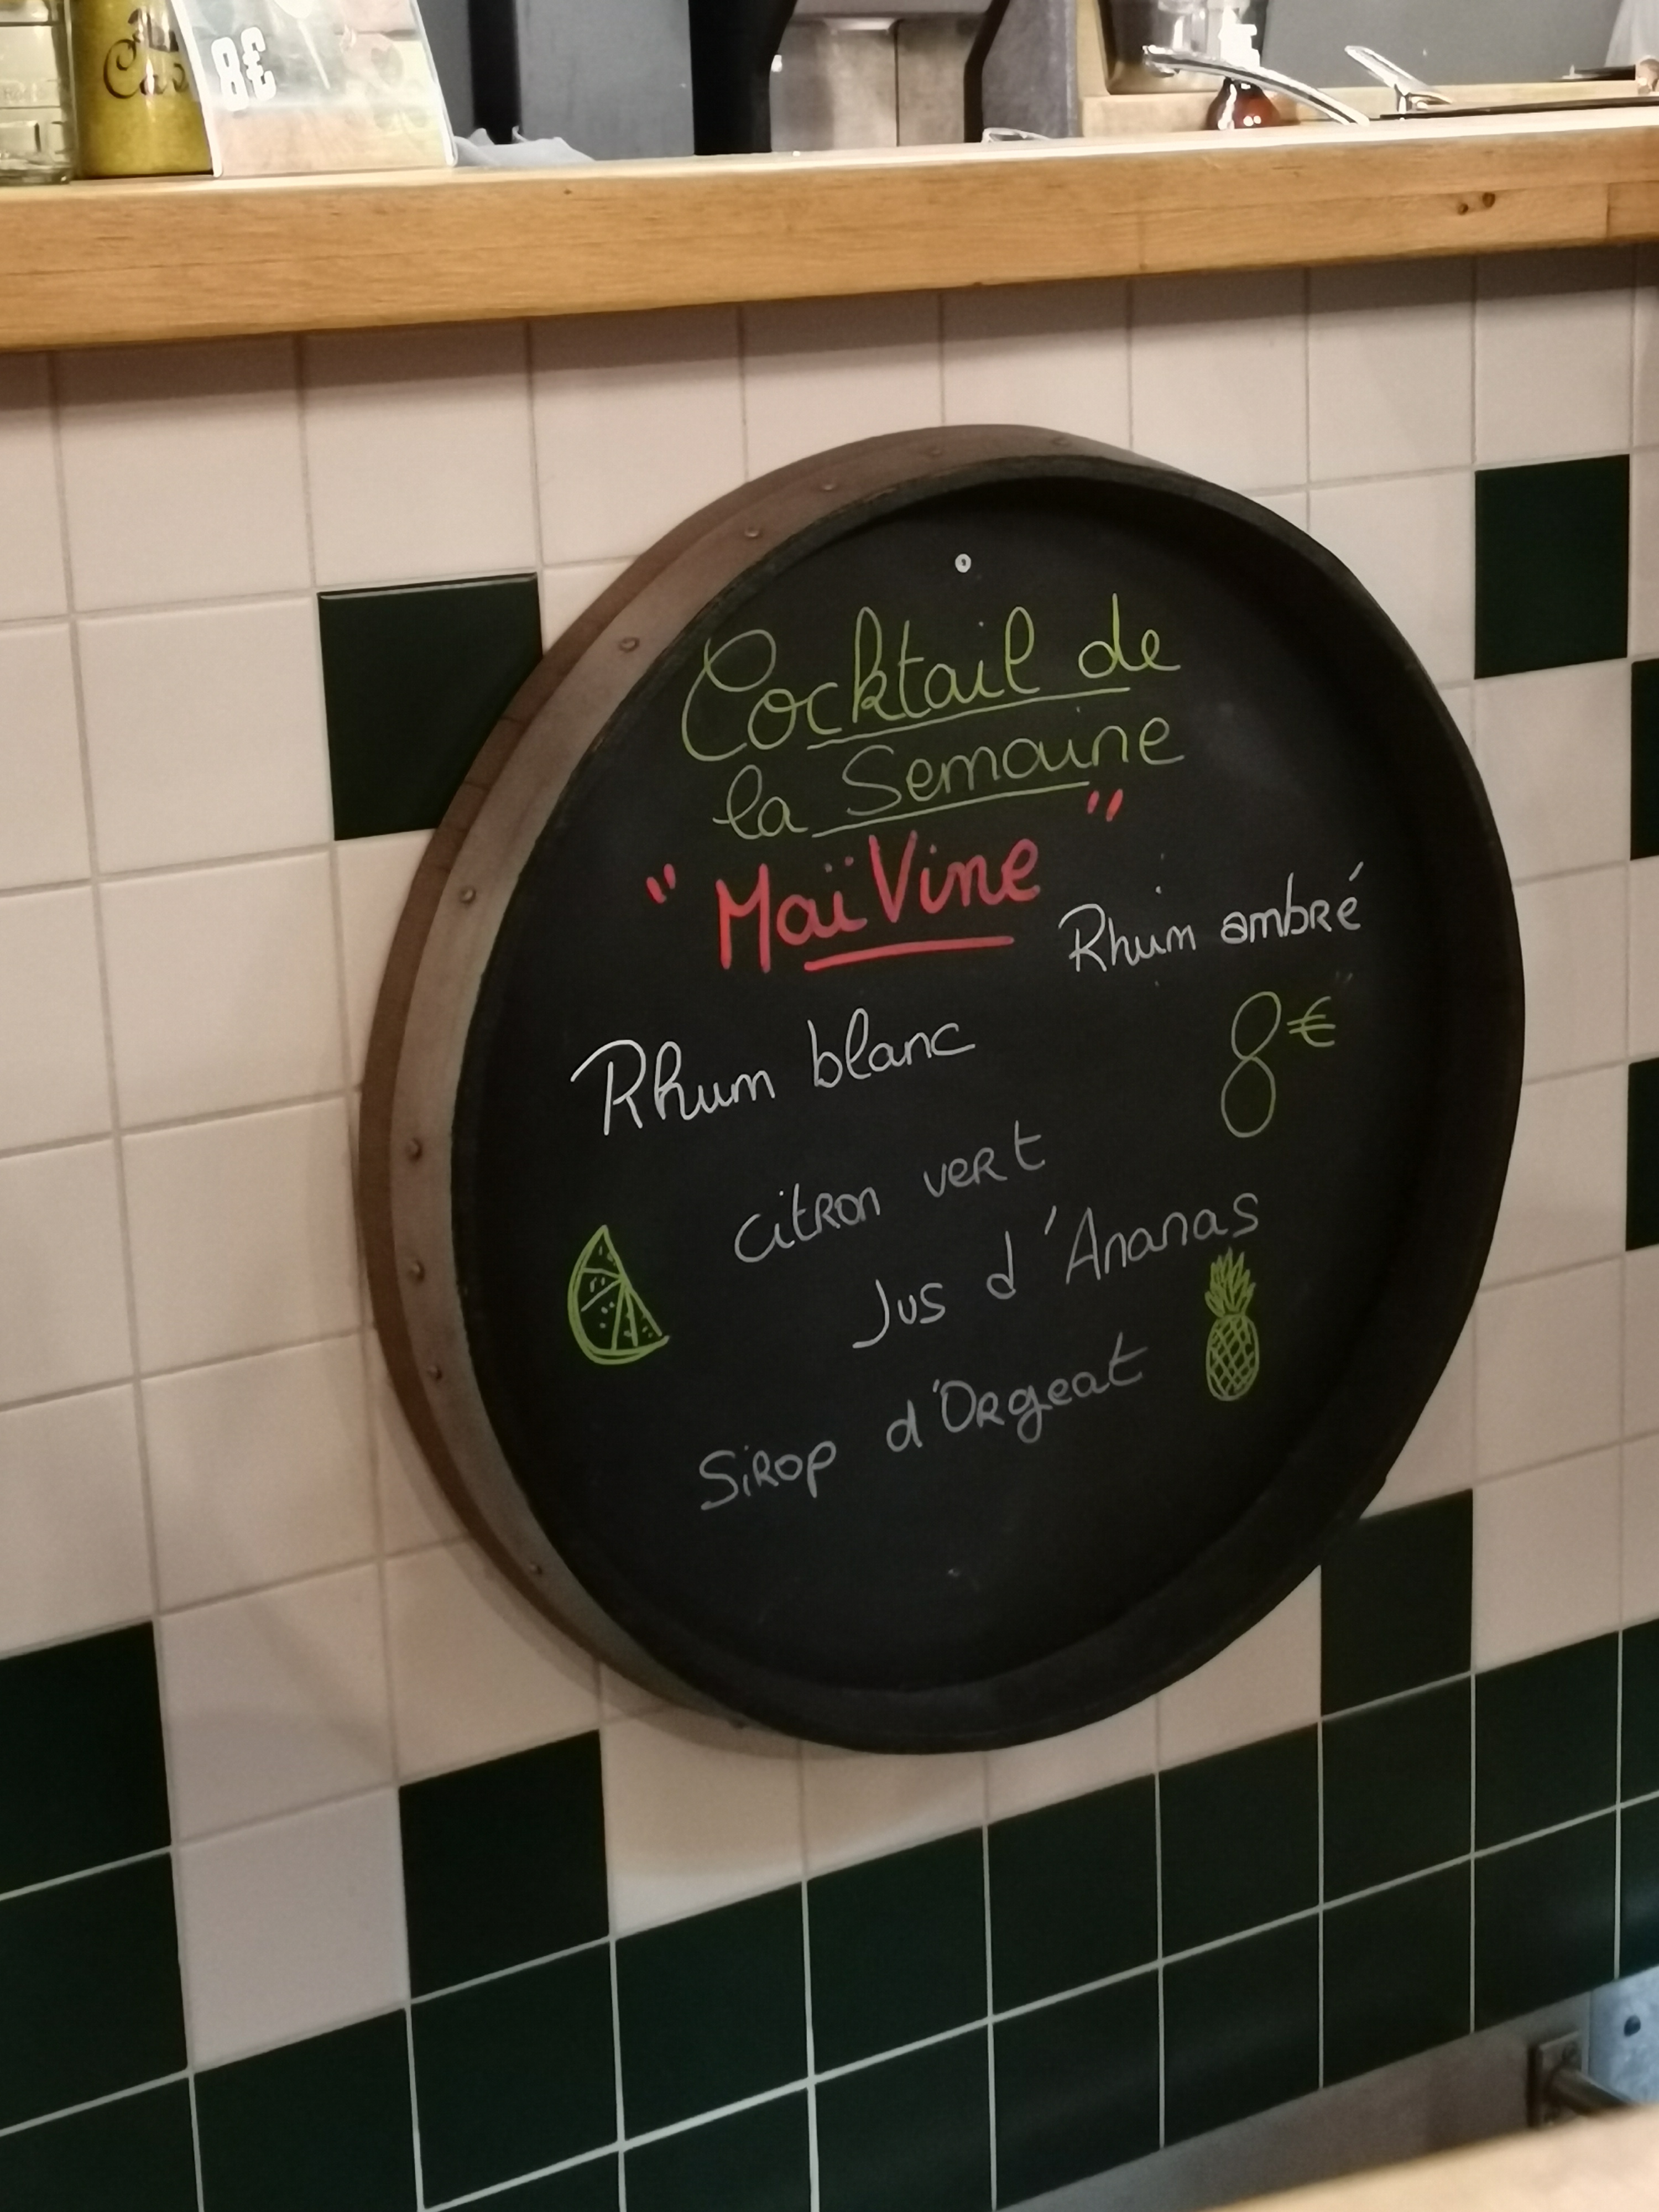 8€
Cocktail de
la Semaine
" MaïVine "
Rhum ambré
Rhum blanc
8€
citron vert
Jus d'Ananas
Sirop d'Orgeat